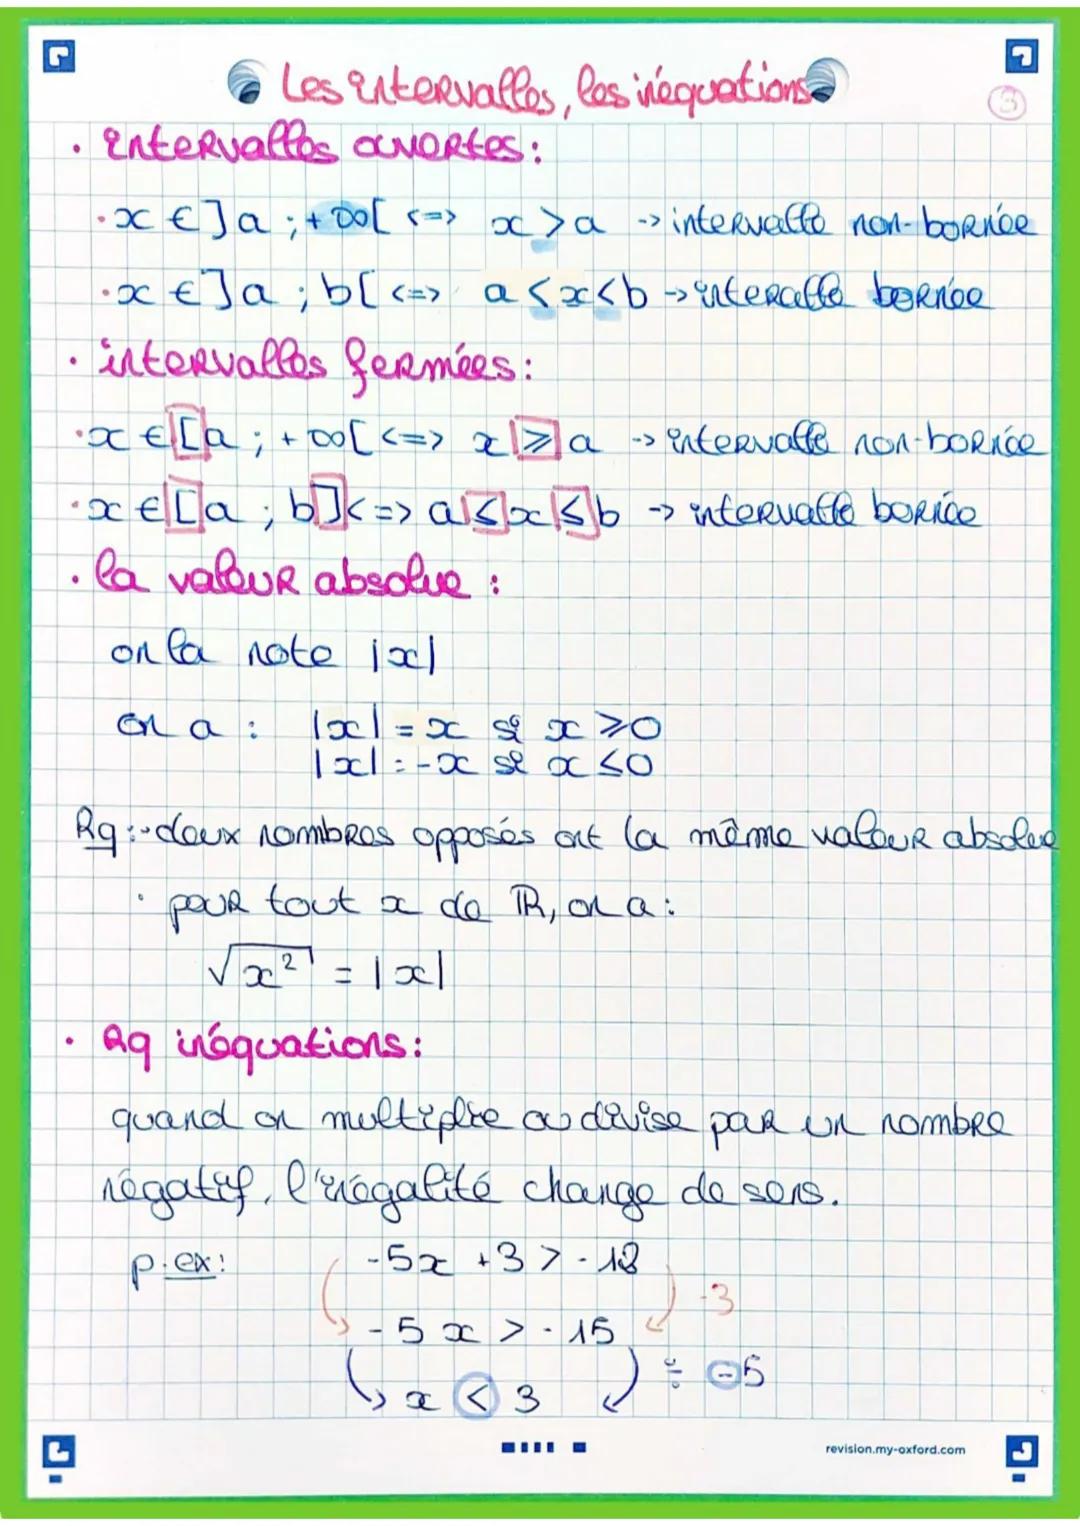 Les intervalles, les inéquations
3
• intervalles ouvertes :
• x ∈ ]a ; +∞[ <=> x > a -> intervalle non-bornée
• x ∈ ]a ; b[ <=> a < x < b -> interalle bornée
• intervalles fermées :
• x ∈ [a ; +∞[ <=> x ⩾ a -> intervalle non-bornée
• x ∈ [a ; b] <=> a ≤ x ≤ b -> intervalle bornée
• la valeur absolue :
on la note |x|
on a : |x| = x si x ⩾ 0
|x| = -x si x ≤ 0
Rq : • deux nombres opposés ont la même valeur absolue
• pour tout x de ℝ, on a :
√x² = |x|
• Rq inéquations :
quand on multiplie ou divise par un nombre
négatif, l'inégalité change de sens.
p.ex : -5x + 3 > -12
-3
-5x > -15
÷ -5
x < 3
revision.my-oxford.com